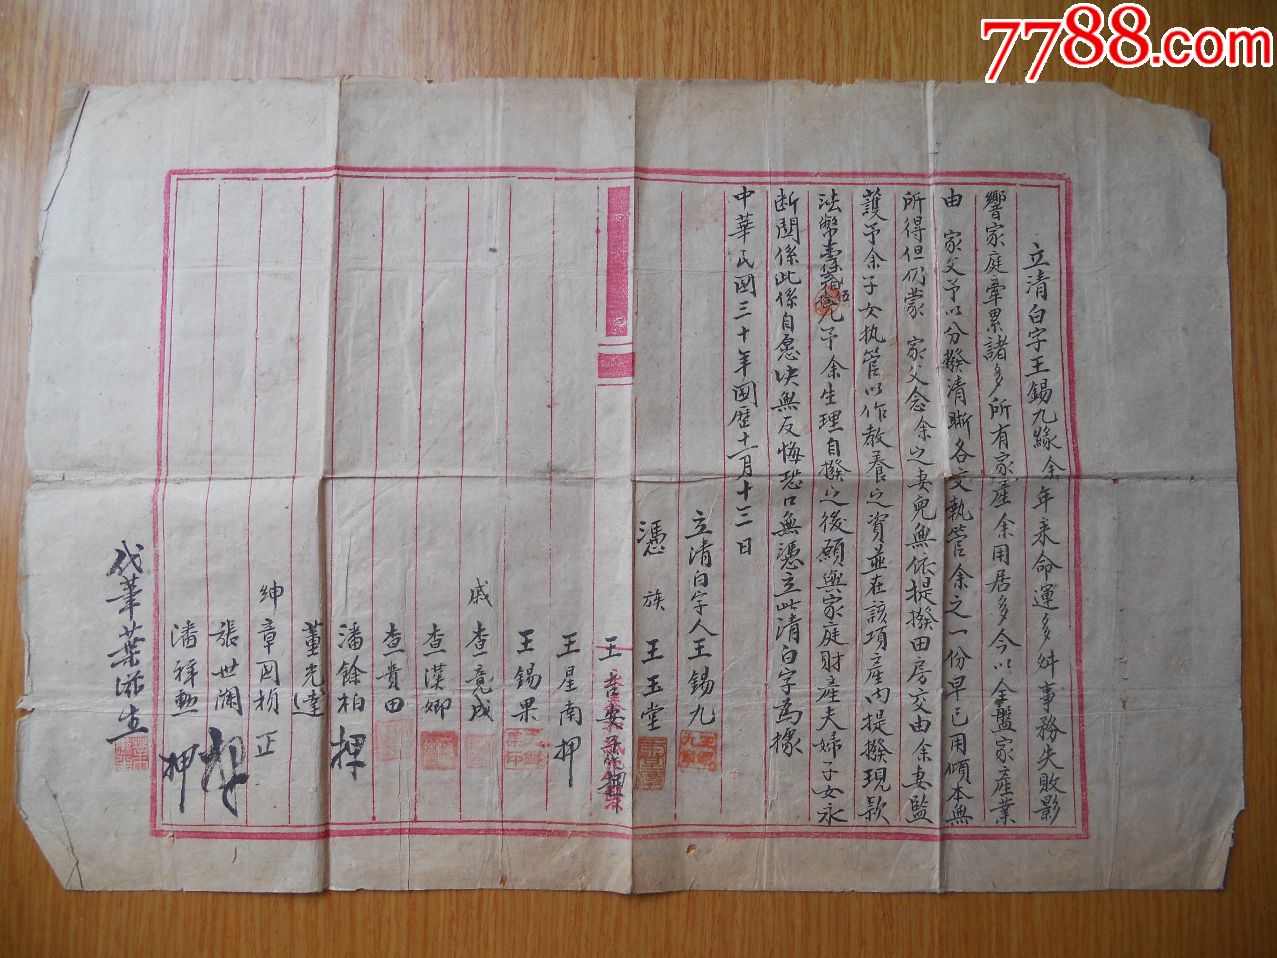 7788.com
立清白字王錫九緣余年來命運多舛事務失敗影
響家庭牽累諸多所有家產余用居多今以全盤家產業
由 家父予以分撥清晰各交執管余之一份早已用傾本無
所得但仍蒙 家父念余之妻兒無依提撥田房交由余妻監
護予余子女執管以作教養之資並在該項產內提撥現款
法幣壹仟 五拾元予余生理自撥之後願與家庭財產夫婦子女永
断関係此係自愿決無反悔恐口無憑立此清白字為據
中華民國三十年國歷十一月十三日
立清白字人王錫九
憑族王玉堂
王
王星南押
王錫果
戚查竟成
查漢卿
查貴田
潘餘柏押
董光達
紳章國楨正
張世瀾押
潘祥懃押
代筆葉滋生